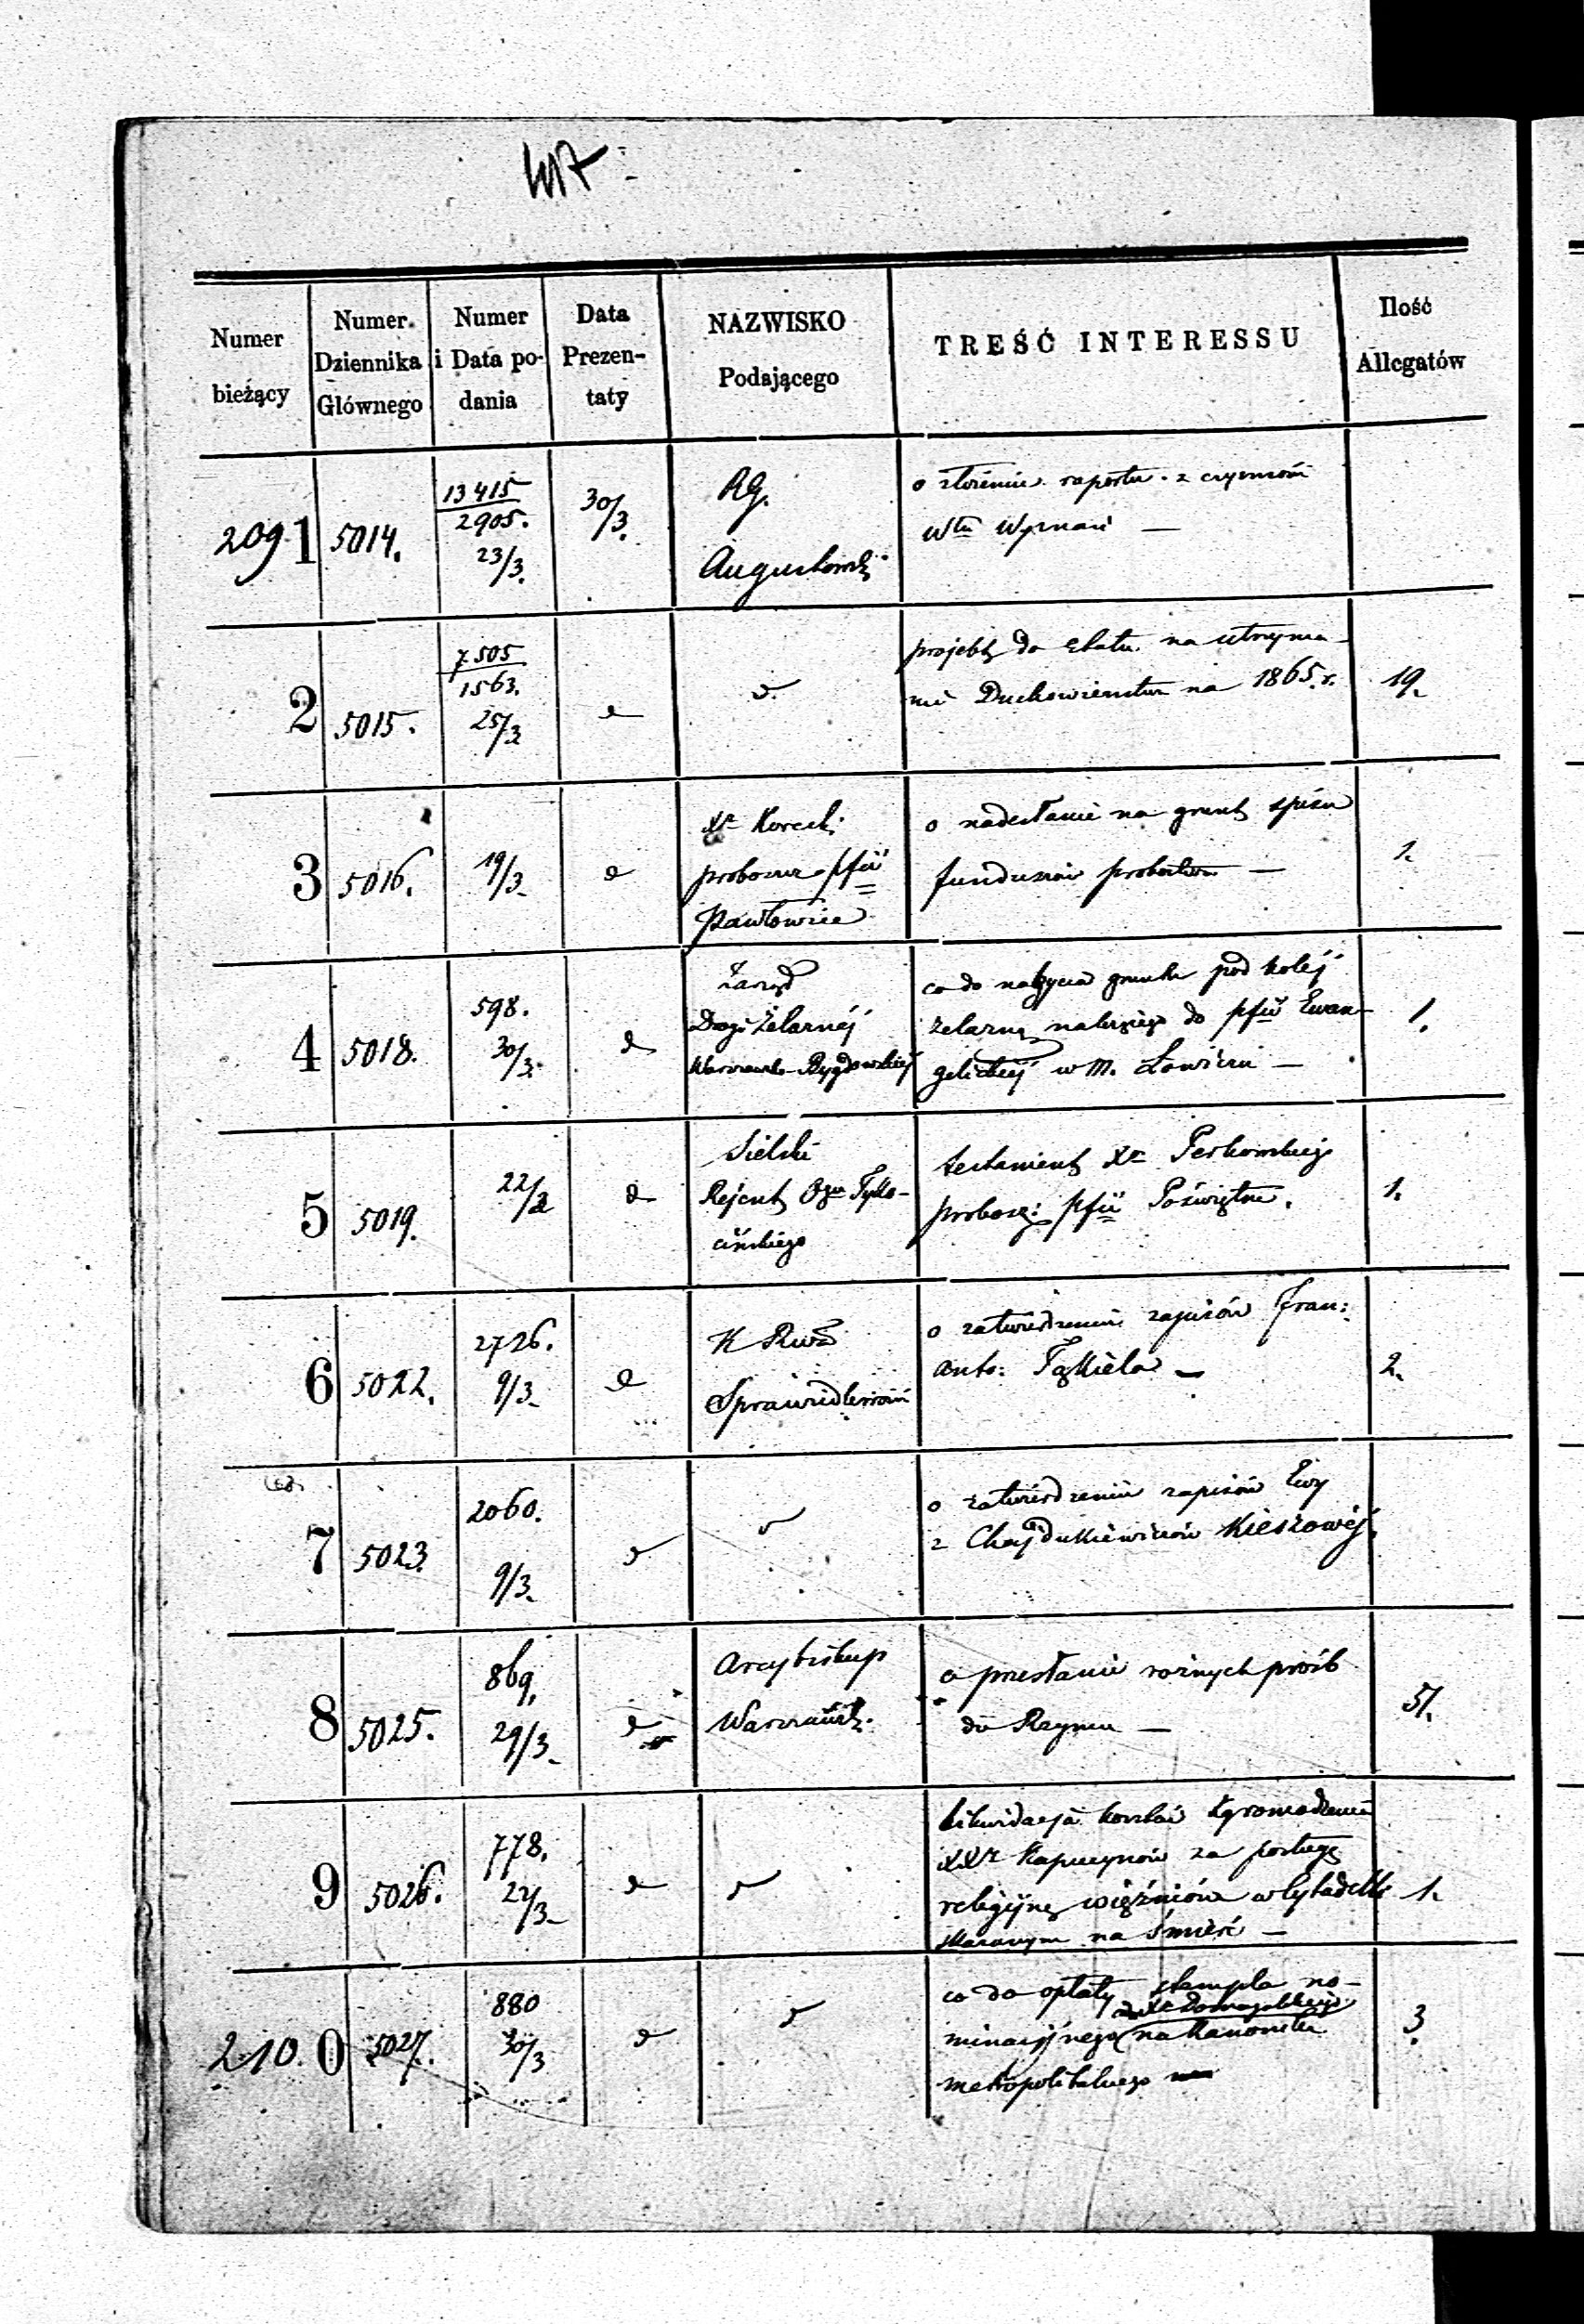 Numer
bieżący
Numer
Dziennika
Głównego
Numer
i Data po-
dania
Data
Prezen-
taty
NAZWISKO
Podającego
TREŚĆ INTERESSU
Ilość
Allegatów
2091
5014.
13415
2905.
23/3.
30/3.
RG.
Augustowski
o złożenie raportu z czynności
Włu Wyznań —
2
5015.
7505
1563.
25/3
projekt do etatu na utrzyma-
nie Duchowieństwa na 1865 r.
19.
3
5016.
19/3.
Xr Korecki
proboszcz pfii
Pawłowice
o nadesłanie na grunt spisu
funduszów probostwa —
1.
4
5018.
598.
30/3.
Zarząd
Drogi Żelaznéj
Warszawsko-Bydgowskiej
co do nabycia gruntu pod koléj
żelazną należącego do pfii Ewan-
gelickiej w M. Łowiczu —
1.
5
5019.
22/2
Sielski
Rejent Ogu Tyko-
cińskiego
testament Xr
probosz: pfii Poświętne.
1.
6
5022.
2726.
9/3.
K Rzwa
Sprawiedliwości
o zatwierdzenie zapisów Fran:
Anto:
2.
7
5023.
2060.
9/3.
o zatwierdzenie zapisów Ewy
z Chajdukiewiczów Kieszowéj.
8
5025.
869.
29/3.
Arcybiskup
Warszawski.
o przesłanie rożnych próśb
do Rzymu —
51.
9
5026.
778.
22/3.
Likwidacja kosztów Zgromadzenia
XXr Kapucynów za posługę
religijną więźniów w Cytadelli
skazanym na śmierć —
1.
2100
5027.
880
30/3
co do opłaty stempla no-
minacyjnego na Kanonika
metropolitalnego
3.